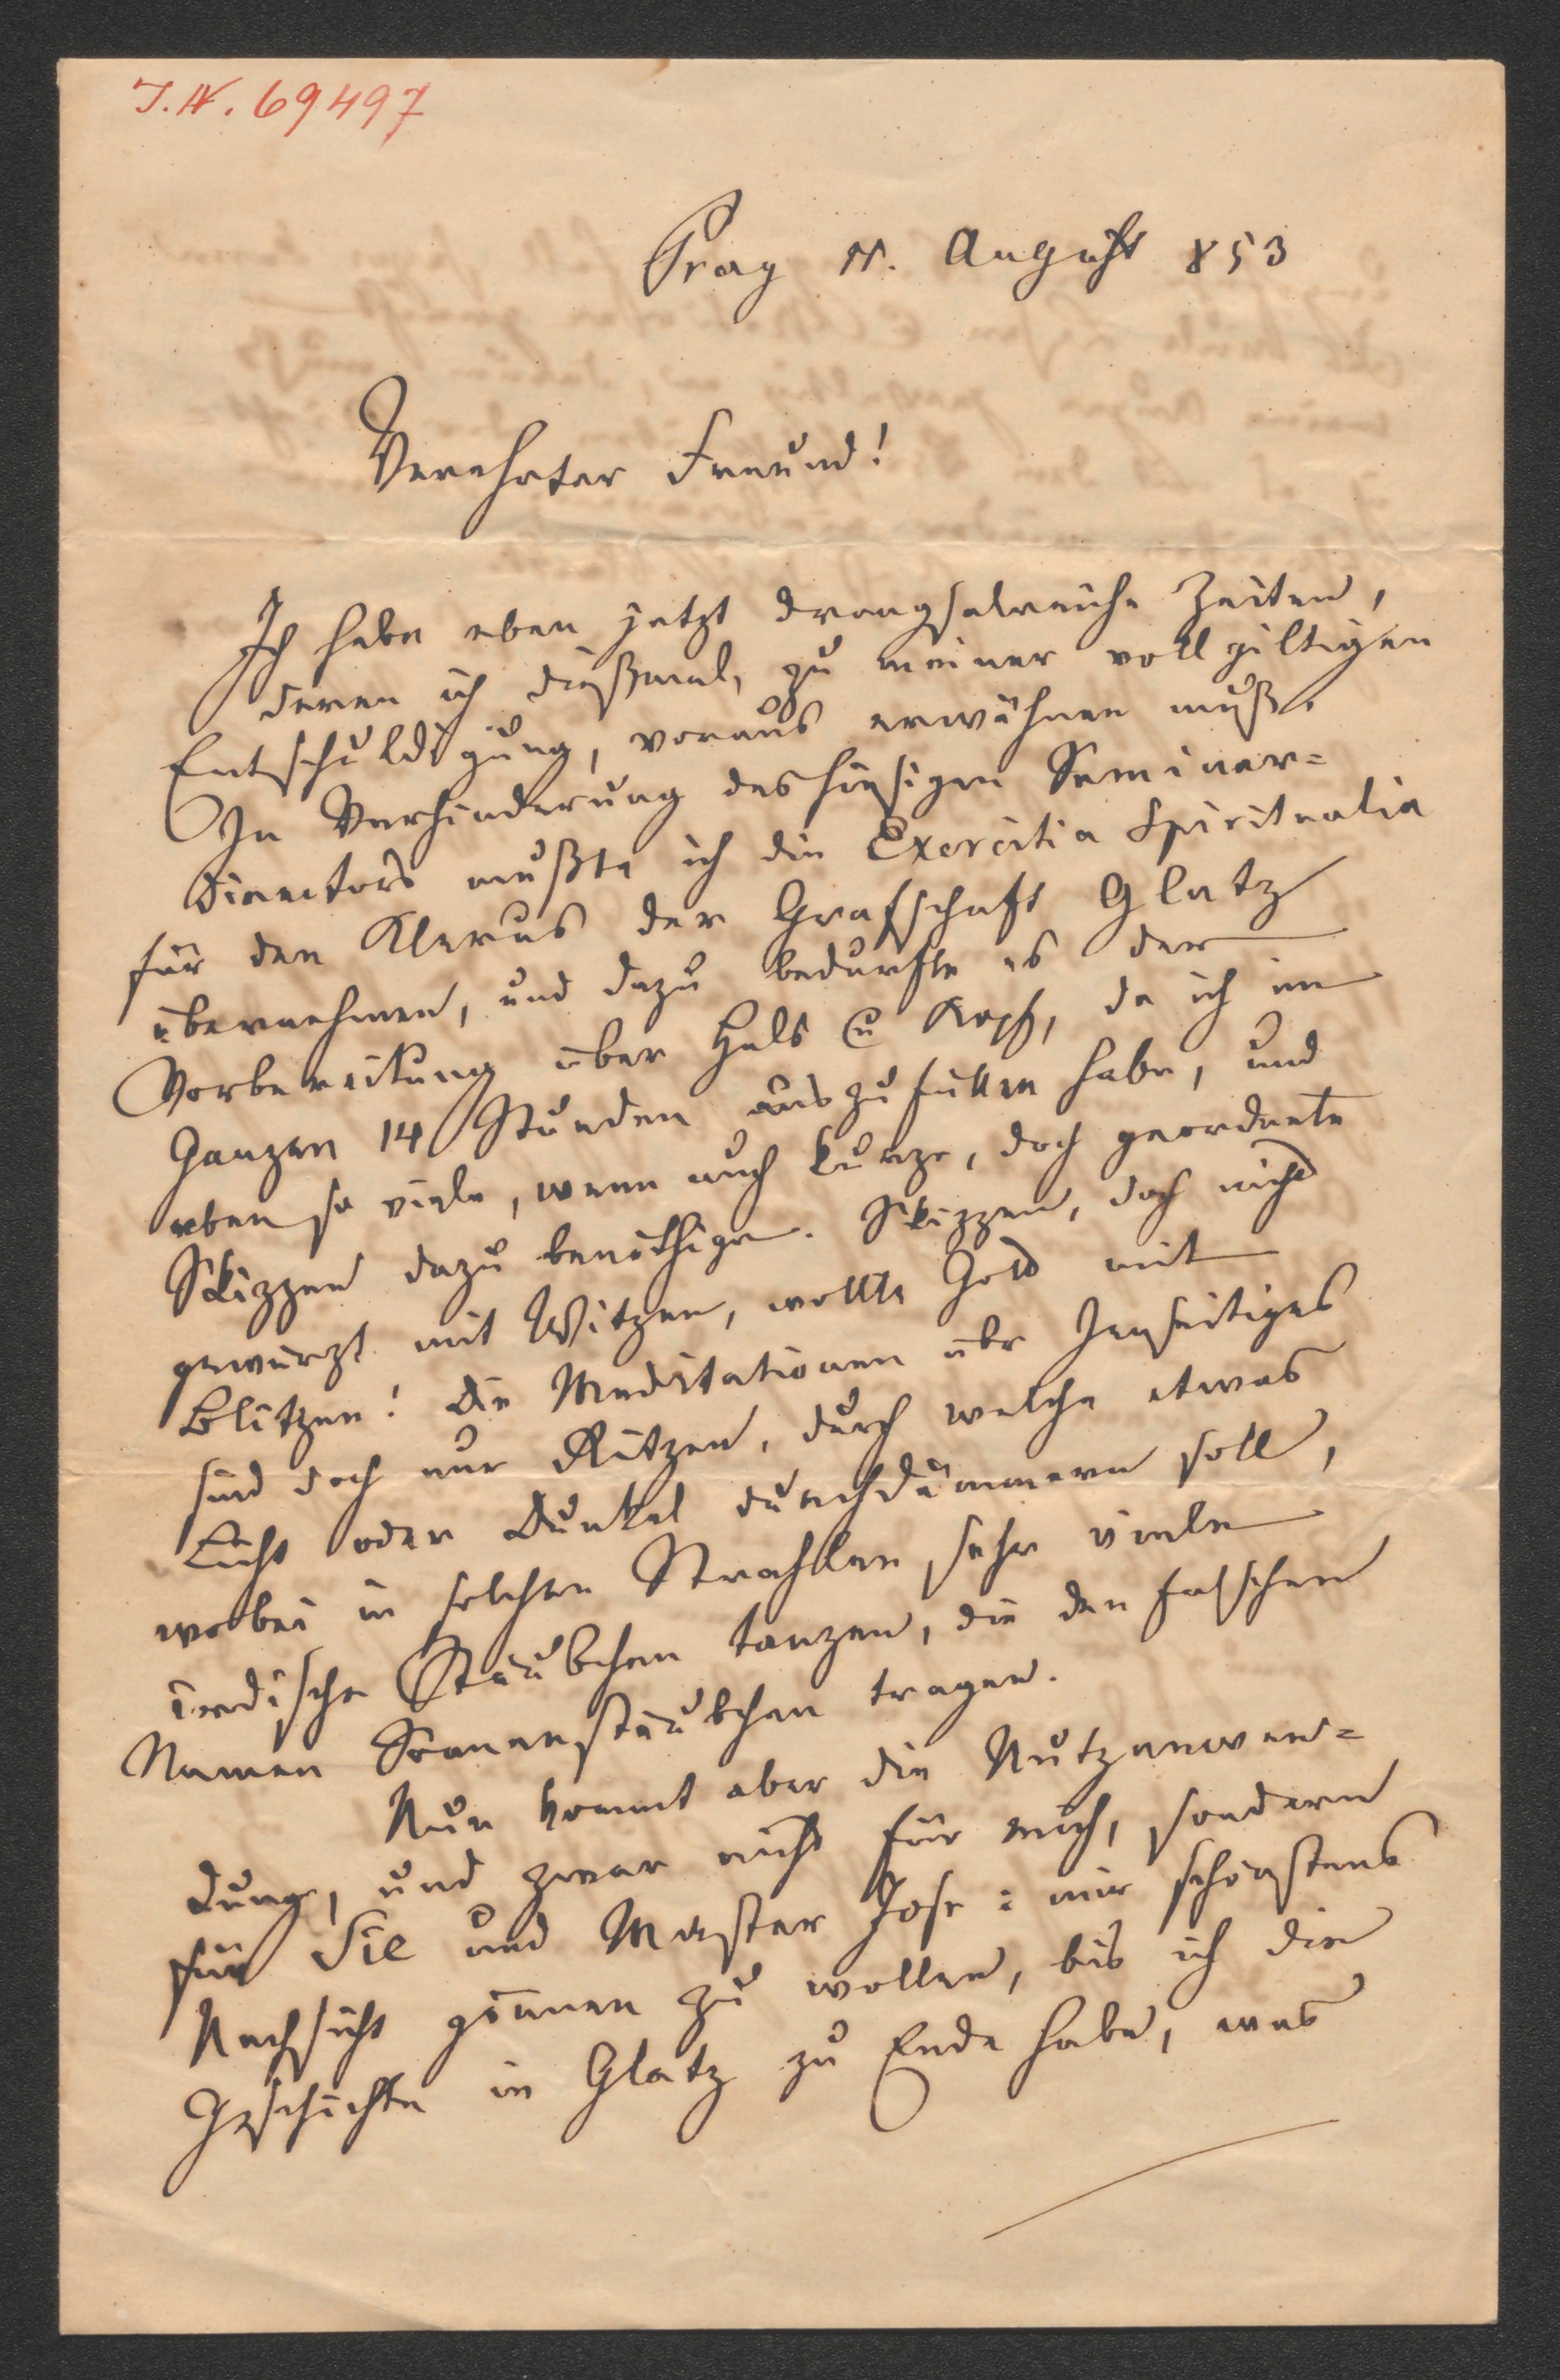 I.N. 69497
Prag 11. August 853
Verehrter Freund!
Ich habe eben jetzt drangsalreiche Zeiten,
deren ich dießmal, zu meiner vollgiltigen
Entschuldigung, voraus erwähnen muß.
In Verhinderung des hiesigen Seminar=
Directors mußte ich die Exercitia Spiritualia
für den Klerus der Grafschaft Glatz
übernehmen, und dazu bedurfte es der
Vorbereitung über Hals u Kopf, da ich im
Ganzen 14 Stunden auszufüllen habe, und
eben so viele, wenn auch kurze, doch geordnete
Skizzen dazu benöthige. Skizzen, doch nicht
gewürzt mit Witzen, wollte Gott mit
Blitzen! Die Meditationen übr Jenseitiges
sind doch nur Ritzen, durch welche etwas
Licht oder Dunkel durchdämmern soll,
wobei in solchen Strahlen sehr viele
irdische Stäubchen tanzen, die den falschen
Namen Sonnenstäubchen tragen.
Nun kommt aber die Nutzanwen=
dung, und zwar nicht für mich, sondern
für Sie und Master Jose: mir schönstens
Nachsicht gönnen zu wollen, bis ich die
Geschichte in Glatz zu Ende habe, was